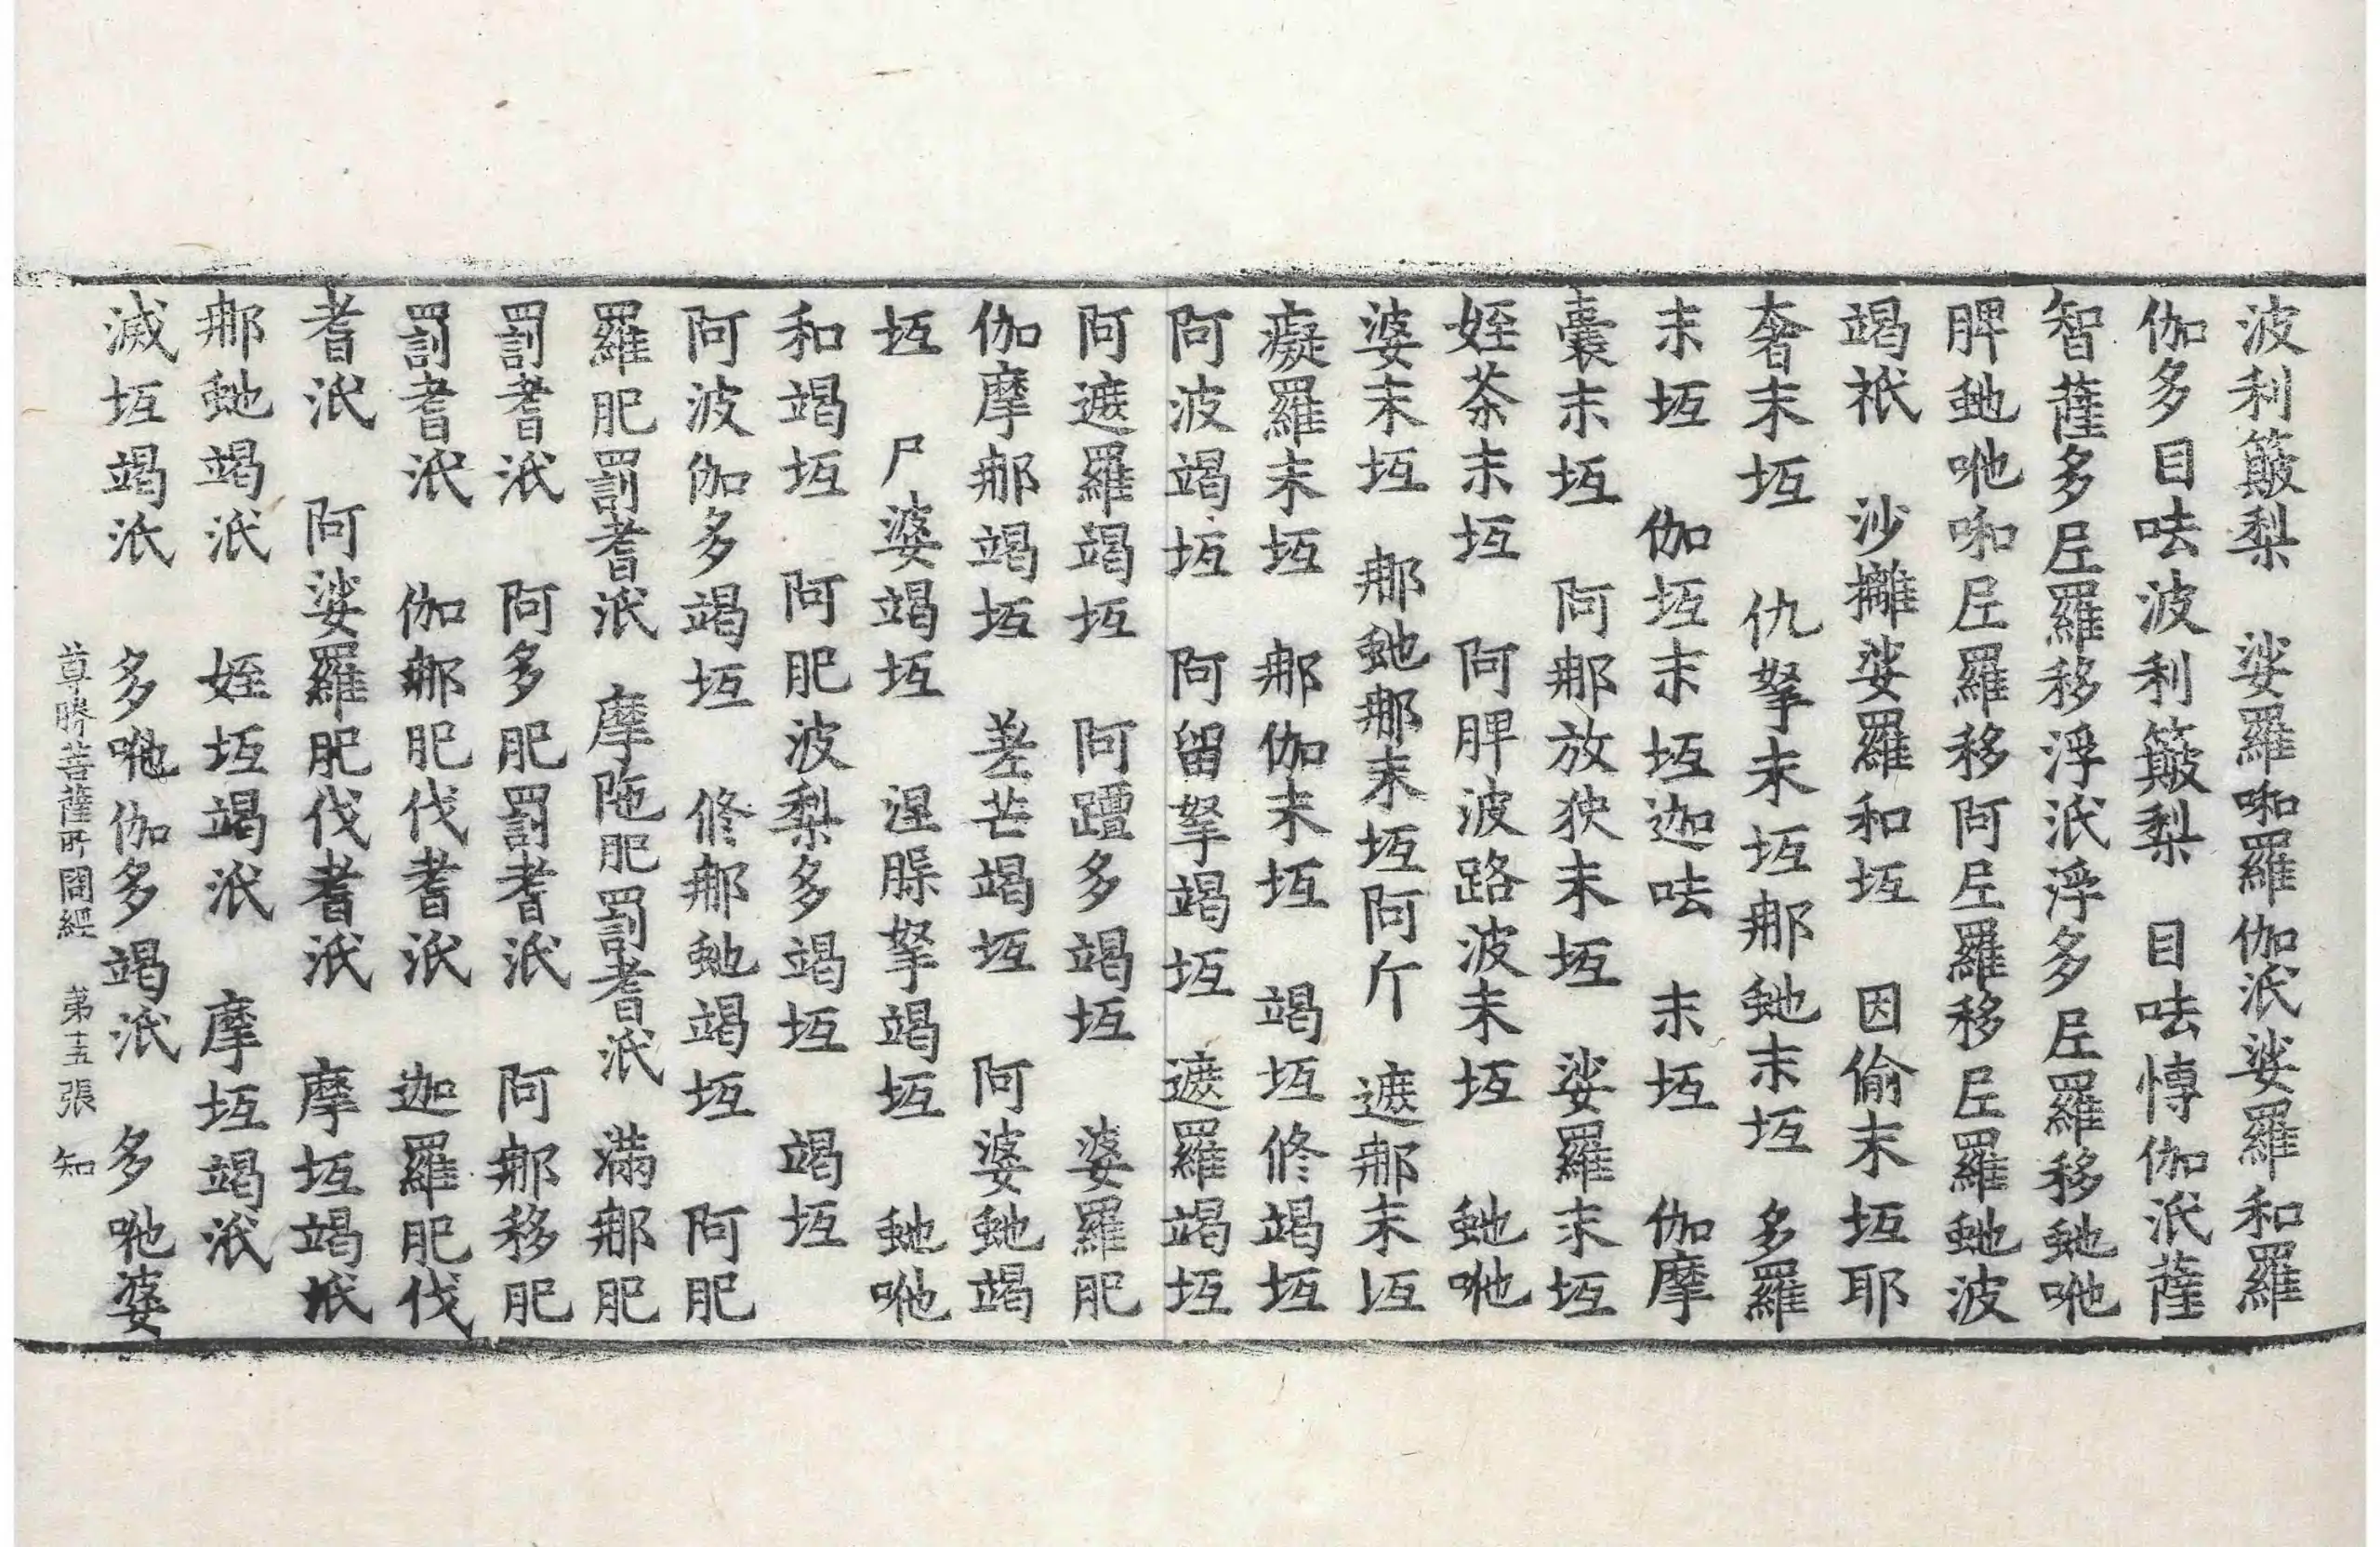 波利簸梨　娑羅啝羅伽泜娑羅和羅
伽多目呿波利簸梨　目呿愽伽泜薩
智薩多𡰱羅移浮泜浮多𡰱羅移虵吔
脾虵吔啝𡰱羅移阿𡰱羅移𡰱羅虵波
竭祇　沙攡娑羅和坘　因偷末坘耶
奢末坘　仇拏末坘那虵末坘　多羅
末坘　伽坘末坘迦呿　末坘　伽摩
囊末坘　阿那放狹末坘　娑羅末坘
姪茶末坘　阿脾波路波末坘　虵吔
婆末坘　那虵那末坘阿斤　遮那末坘
癡羅末坘　那伽末坘　竭坘修竭坘
阿波竭坘　阿留拏竭坘　遮羅竭坘
阿遮羅竭坘　阿躔多竭坘　婆羅肥
伽摩那竭坘　差芒竭坘　阿婆虵竭
坘　尸婆竭坘　涅脲拏竭坘　虵吔
和竭坘　阿肥波梨多竭坘　竭坘
阿波伽多竭坘　修那虵竭坘　阿肥
羅肥罰耆泜　摩陁肥罰耆泜　滿那肥
罰耆泜　阿多肥罰耆泜　阿那移肥
罰耆泜　伽那肥伐耆泜　迦羅肥伐
耆泜　阿娑羅肥伐耆泜　摩坘竭泜
那虵竭泜　姪坘竭泜　摩坘竭泜
滅坘竭泜　多吔伽多竭泜　多吔婆
尊勝菩薩所問經　第十五張　知